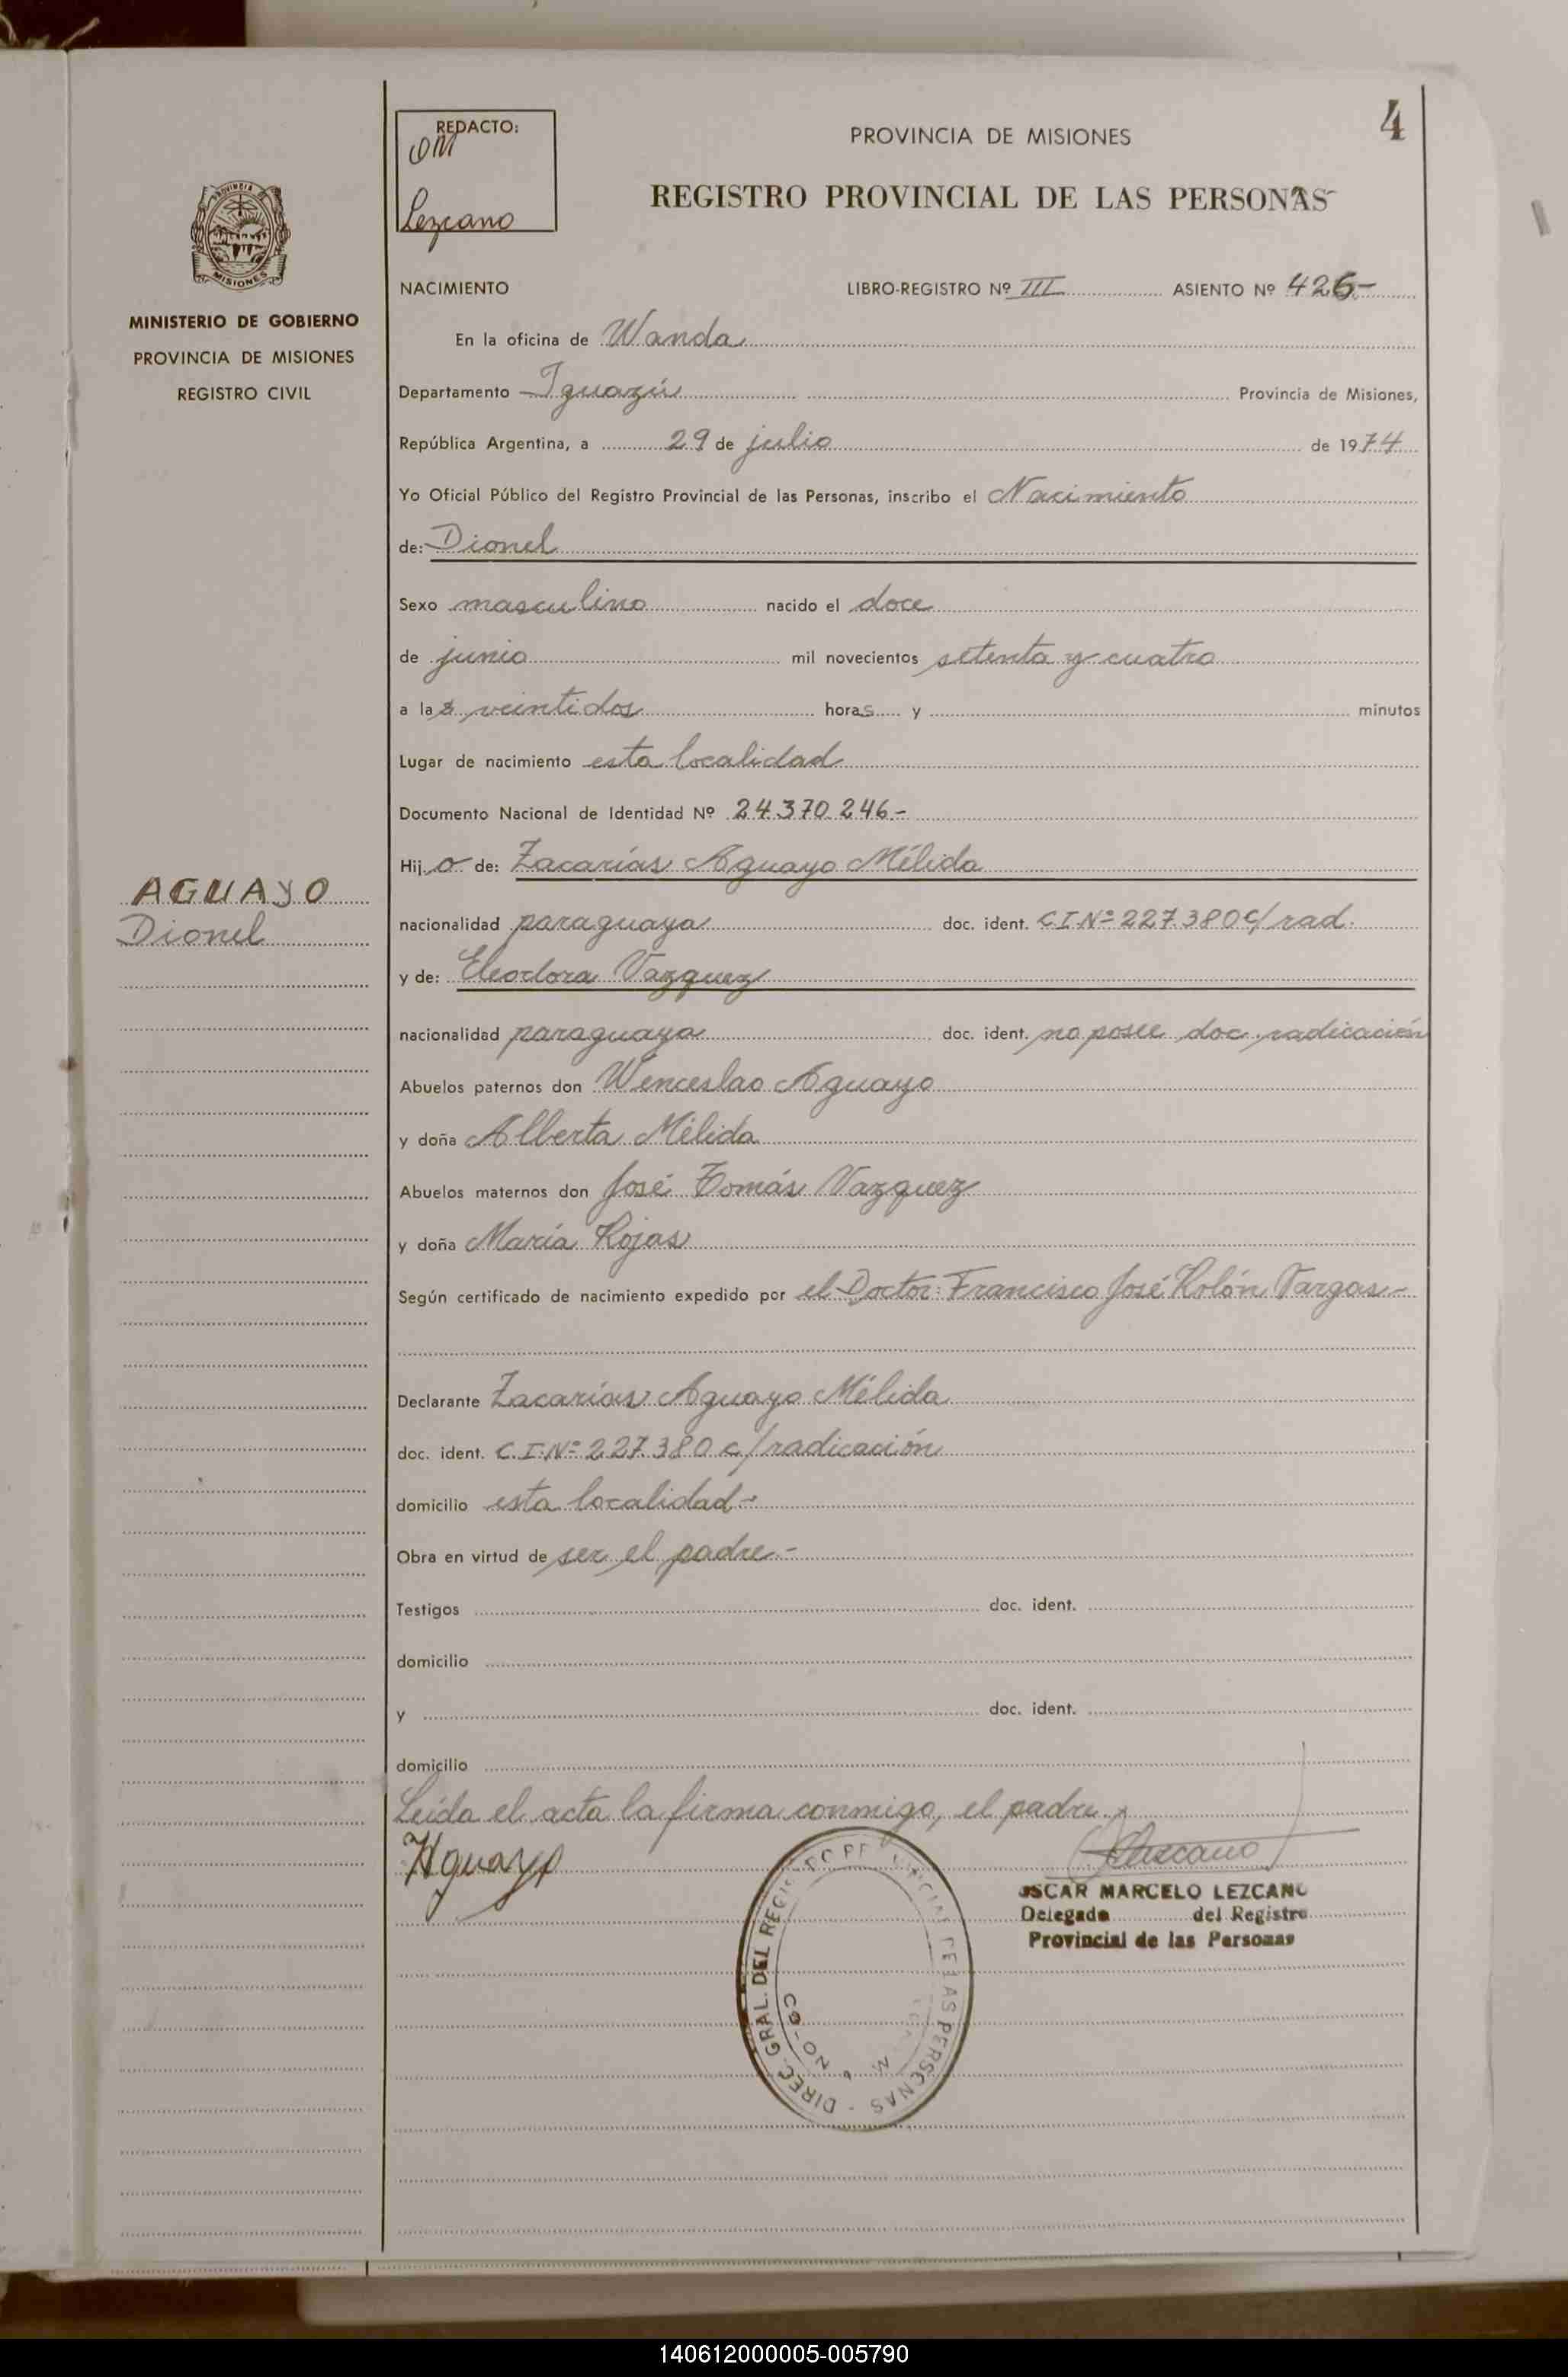 4
REDACTO:
OM
Lezcano
PROVINCIA DE MISIONES
REGISTRO PROVINCIAL DE LAS PERSONAS
PROVINCIA
MISIONES
MINISTERIO DE GOBIERNO
PROVINCIA DE MISIONES
REGISTRO CIVIL
NACIMIENTO LIBRO-REGISTRO Nº III ASIENTO Nº 426-
En la oficina de Wanda
Departamento Iguazú Provincia de Misiones,
República Argentina, a 29 de julio de 1974
Yo Oficial Público del Registro Provincial de las Personas, inscribo el Nacimiento
de: Dionel
Sexo masculino nacido el doce
de junio mil novecientos setenta y cuatro
a las veintidos horas y minutos
Lugar de nacimiento esta localidad
Documento Nacional de Identidad Nº 24.370.246-
Hijo de: Zacarías Aguayo Mélida
AGUAYO
Dionel
nacionalidad paraguaya doc. ident. C.I.Nº 227.380 c/ rad.
y de: Eleodora Vazquez
nacionalidad paraguaya doc. ident. no posee doc. radicación
Abuelos paternos don Wenceslao Aguayo
y doña Alberta Mélida
Abuelos maternos don José Tomás Vazquez
y doña María Rojas
Según certificado de nacimiento expedido por el Doctor: Francisco José Kolón Vargas-
Declarante Zacarías Aguayo Mélida
doc. ident. C.I.Nº 227.380 c/radicación
domicilio esta localidad-
Obra en virtud de ser el padre.-
Testigos doc. ident.
domicilio
y doc. ident.
domicilio
Leída el acta la firma conmigo, el padre.
Aguayo
Lezcano
OSCAR MARCELO LEZCANO
Delegado del Registro
Provincial de las Personas
DIREC. GRAL. DEL REGISTRO PROVINCIAL DE LAS PERSONAS
140612000005-005790